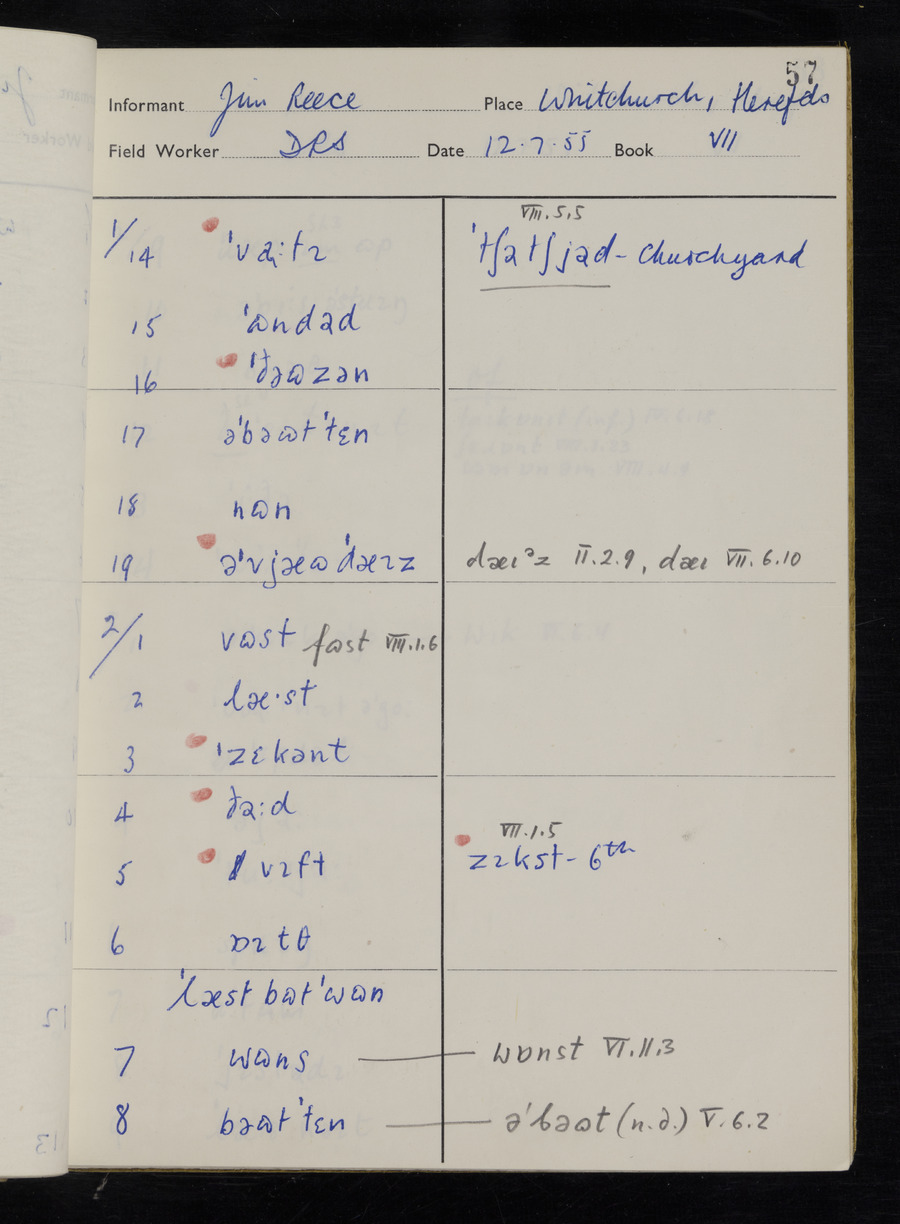 57
Informant Jim Reece Place Whitchurch, Herefds
Field Worker DRS Date 12·7·55 Book VII
VIII.5.5
1/14 ˈvɑ̟ːtɪ ˈtʃətʃjəd - churchyard
15 ˈɷndəd
16 ˈðəɷzən
17 əˈbəɷtˈtɛn
18 nɷn
19 əˈvjæɷˈdæɪz dæɪᵊz II.2.9, dæɪ VII.6.10
2/1 vɷst fɷst VIII.1.6
2 læ·st
3 ˈzɛkənt
4 ðəːd
VII.1.5
5 vɪft zɪkst - 6th
6 ɒɪtθ
ˈlæst bɷtˈwɷn
7 wɷns wɒnst VI.11.3
8 bəɷtˈtɛn əˈbəɷt (n.d.) V.6.2